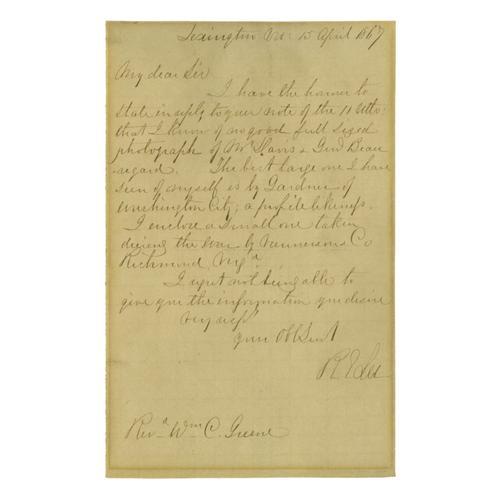 Lexington Va: 15 April 1867
My dear Sir
I have the honour to
state in reply to your note of the 11 Ulto:
that I know of no good full sized
photograph of Mr Davis & Genl Beau
regard. The best large one I have
seen of myself is by Gardner of
Washington City; a profile likeness.
I enclose a small one taken
during the war by Vannerson & Co
Richmond Virga
I regret not being able to
give you the information you desire
Very resply
your Obt Servt
R E Lee
Revd Wm C. Greene